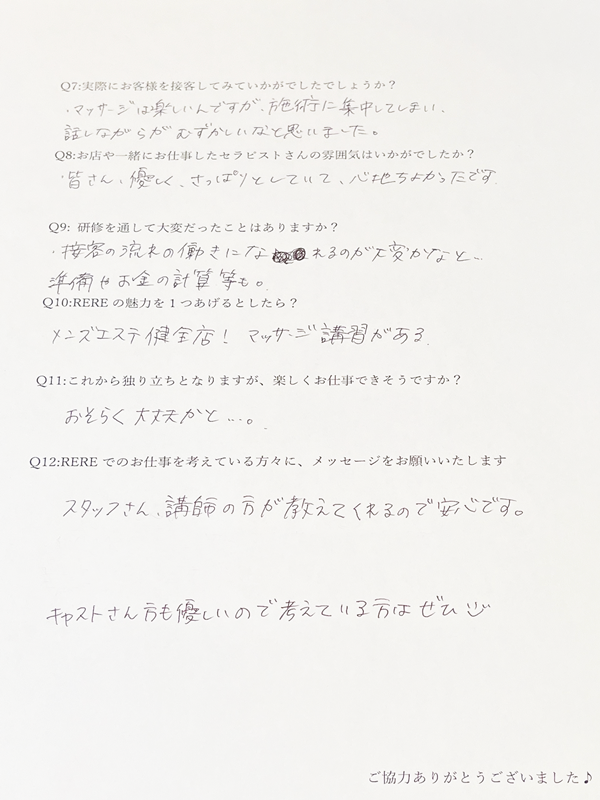 Q7:実際にお客様を接客してみていかがでしたでしょうか?
・マッサージは楽しいんですが、施術に集中してしまい、
話しながらがむずかしいなと思いました。
Q8:お店や一緒にお仕事したセラピストさんの雰囲気はいかがでしたか?
・皆さん、優しく、さっぱりとしていて、心地ちよかったです
Q9: 研修を通して大変だったことはありますか?
・接客の流れの働きになれるのが大変かなと…
準備やお金の計算等も。
Q10:REREの魅力を1つあげるとしたら?
メンズエステ健全店! マッサージ講習がある
Q11:これから独り立ちとなりますが、楽しくお仕事できそうですか?
おそらく大丈夫かと…。
Q12:REREでのお仕事を考えている方々に、メッセージをお願いいたします
スタッフさん、講師の方が教えてくれるので安心です。
キャストさん方も優しいので考えている方はぜひ
ご協力ありがとうございました♪